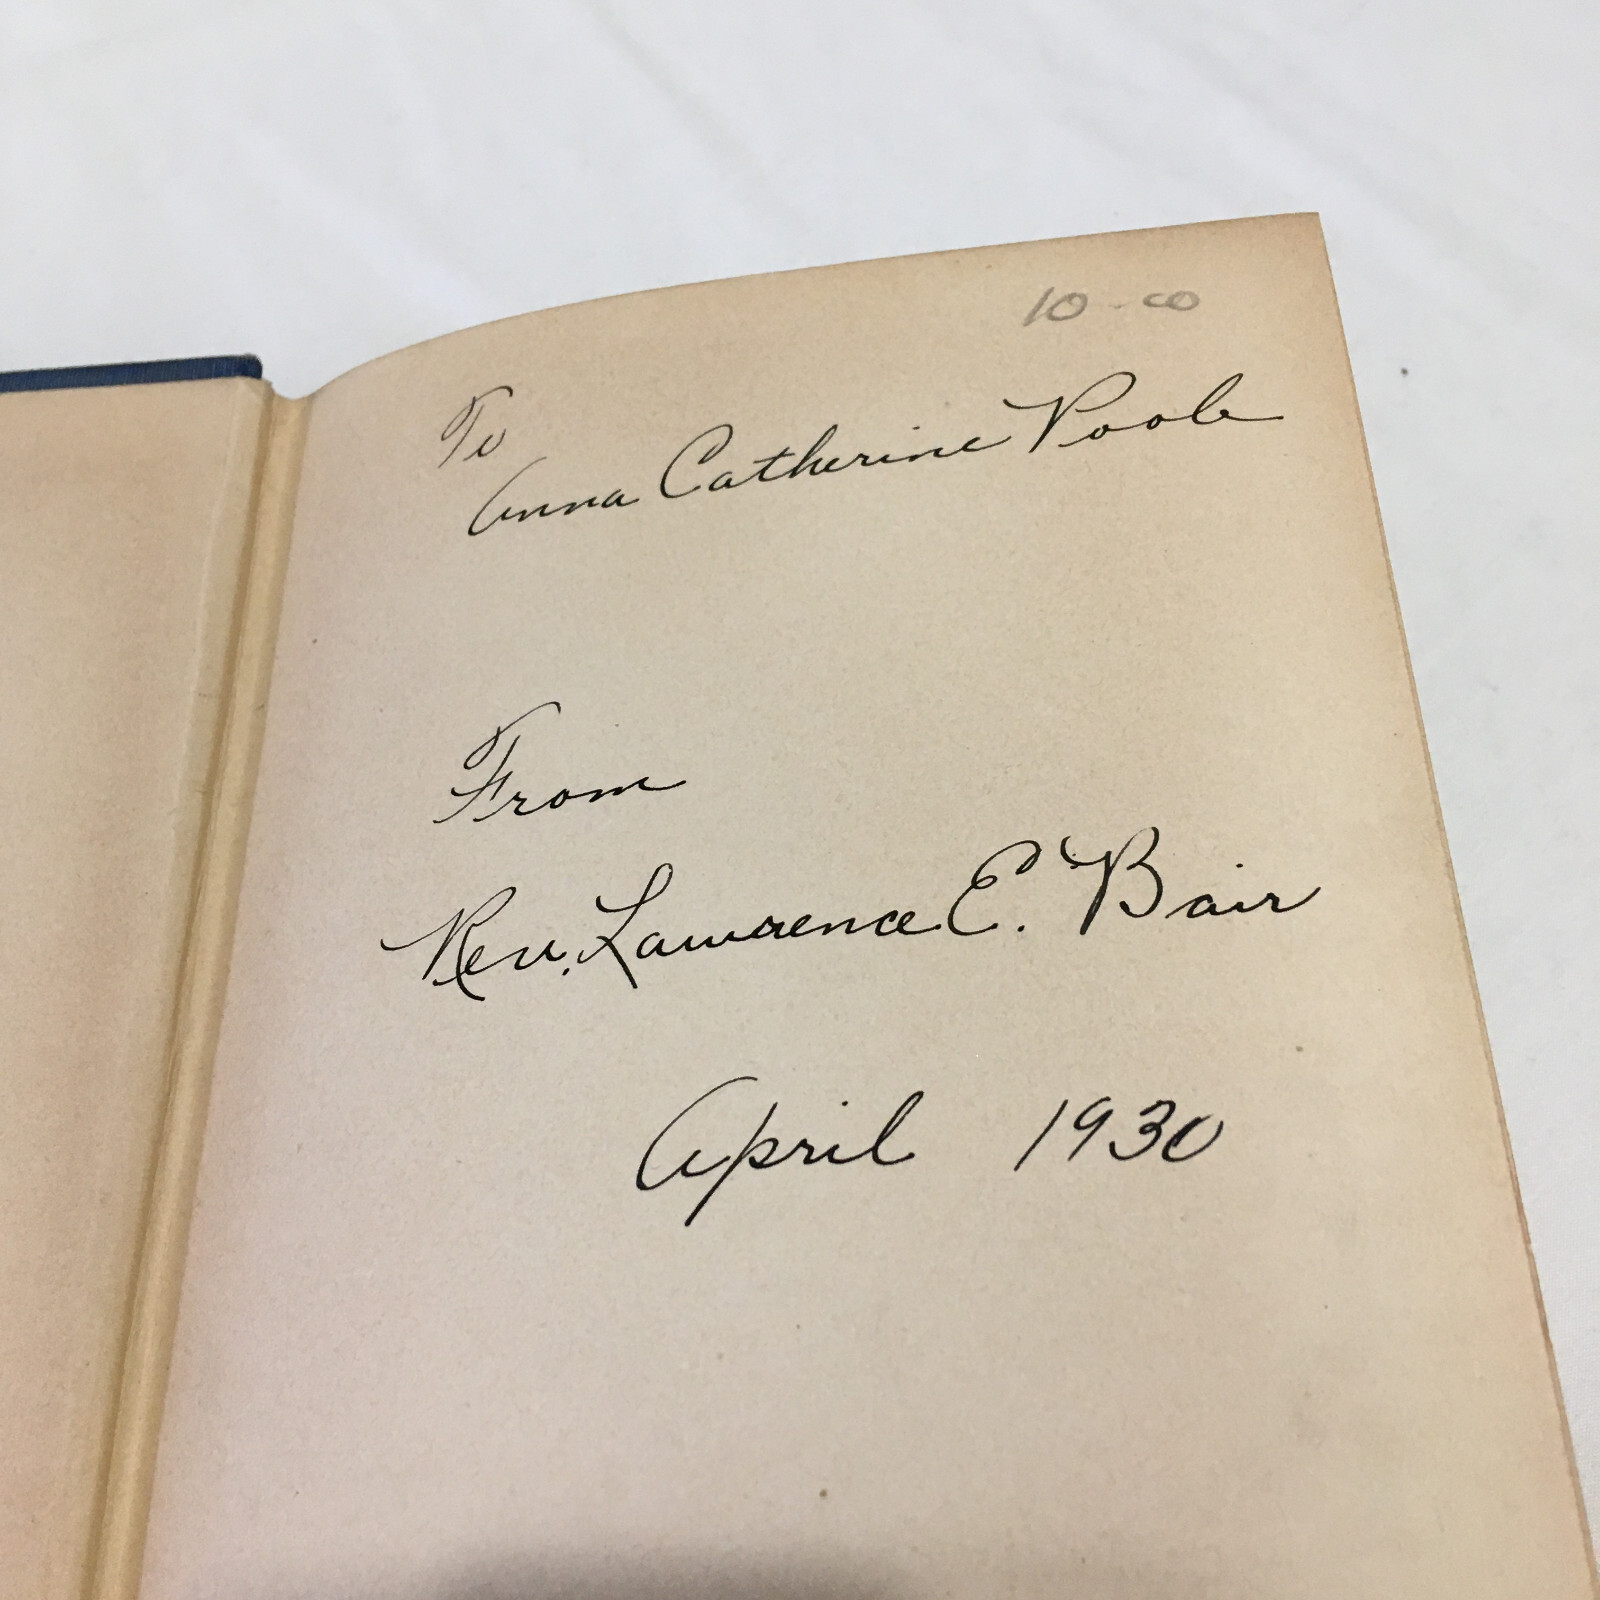 10-00
To
Anna Catherine Poole
From
Rev. Lawrence E. Bair
April 1930